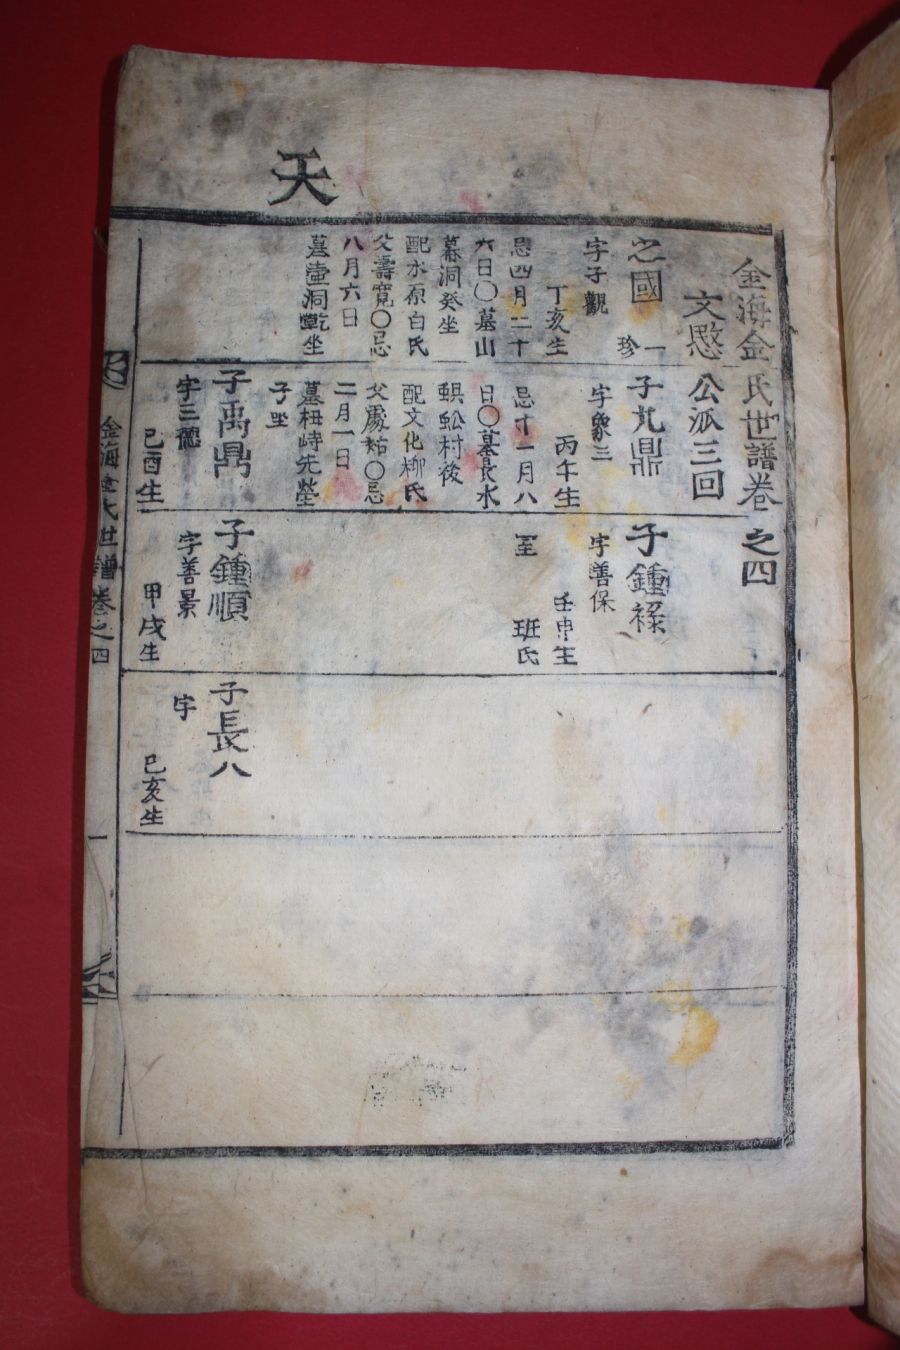 天
金海金氏世譜卷之四
文愍公派三回
之國
一
珍
字子觀
丁亥生
忌四月二十
六日〇墓山
幕洞癸坐
配水原白氏
父壽寬〇忌
八月六日
墓壷洞乾坐
子九鼎
字象三
丙午生
忌十一月八
日〇墓長水
蜈蚣村後
配文化柳氏
父處祜〇忌
二月一日
墓柑峙先塋
子坐
子禹鼎
字三德
己酉生
子鍾祿
字善保
壬申生
室
班氏
子鍾順
字善景
甲戌生
子長八
字
己亥生
金海金氏世譜卷之四
一